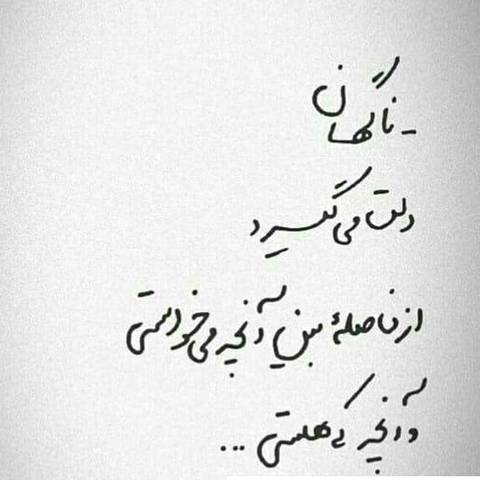 - ناگهان
دلت می‌گیرد
از فاصلهٔ بین آنچه می‌خواستی
و آنچه که هستی ...